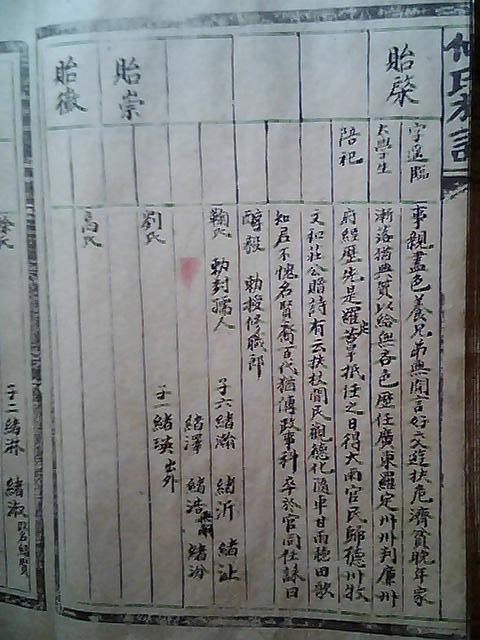 氏
貽棨
字進臨
事親盡色養兄弟無閒言好交遊扶危濟貧晚年家
太學生
漸落猶典質以給無吝色歷任廣東羅定州州判廣州
陪祀
府經歷先是羅定苦旱抵任之日得大雨官民歸德州牧
文和莊公贈詩有云扶杖閭民觀德化隨車甘雨聽田歌
知君不愧名賢裔百代猶傳政事科卒於官同任誄曰
醇毅 勅授修職郎
鞠氏 勅封孺人 子六緒瀚 緒沂 緒沚
緒澤 緒浩 緒汾
貽崇
劉氏 子一緒瑛出外
貽徽
高氏
子二緒淋 緒淑